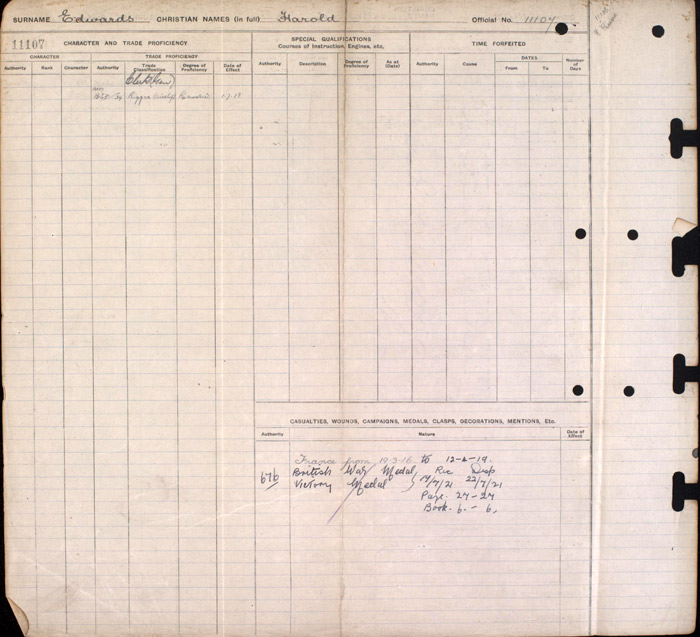 SURNAME Edwards CHRISTIAN NAMES (in full) Harold Official No. 11107
11107 CHARACTER AND TRADE PROFICIENCY
SPECIAL QUALIFICATIONS
Courses of Instruction, Engines, etc.
TIME FORFEITED
CHARACTER TRADE PROFICIENCY
Authority Rank Character Authority Trade Classification Degree of Proficiency Date of Effect
Authority Description Degree of Proficiency As at (Date)
Authority Cause DATES From To Number of Days
Rigger 1-7-19
CASUALTIES, WOUNDS, CAMPAIGNS, MEDALS, CLASPS, DECORATIONS, MENTIONS, Etc.
Authority Nature Date of Effect
France from 19-3-16 to 12-2-19.
676 British War Medal, Rec Desp
Victory Medal } 19/7/21 22/7/21
Page. 27 - 27
Book. 6. - 6.